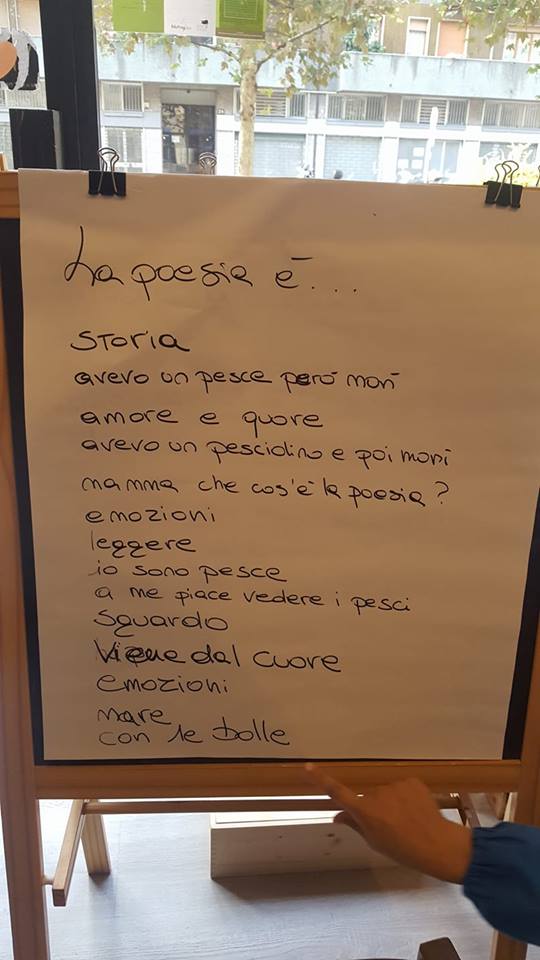 La poesia è...
STORIA
avevo un pesce però morì
amore e quore
avevo un pesciolino e poi morì
mamma che cos'è la poesia?
emozioni
leggere
io sono pesce
a me piace vedere i pesci
sguardo
viene dal cuore
emozioni
mare
con le bolle